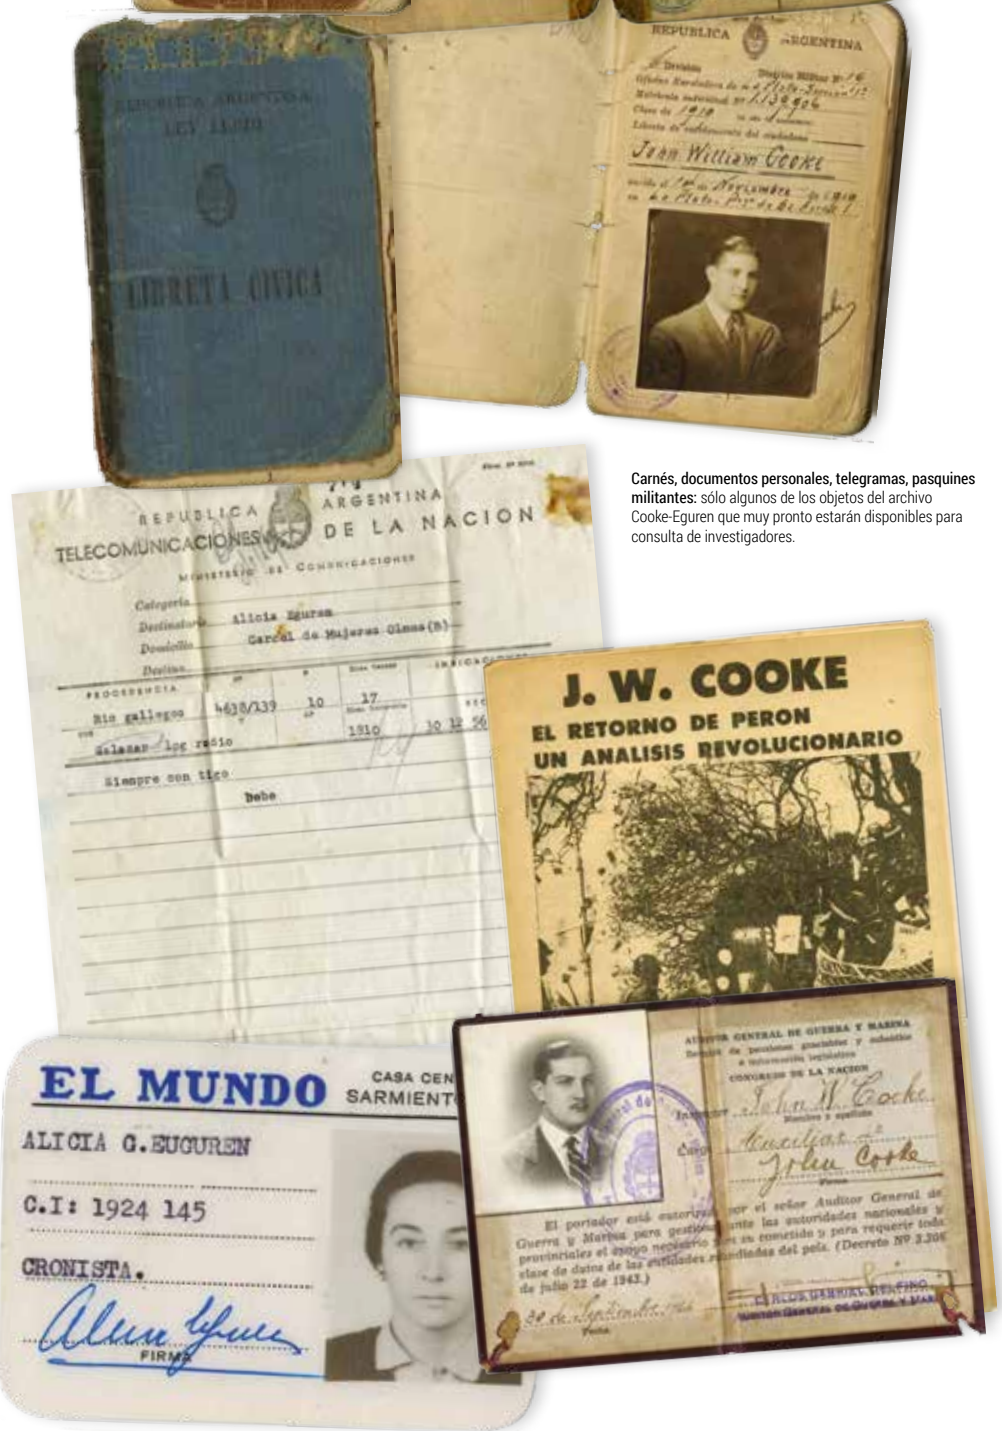 REPUBLICA ARGENTINA
LEY 11.386
LIBRETA CIVICA
REPUBLICA ARGENTINA
División
Distrito Militar Nº 16
Clase de 1919
John William Cooke
Noviembre de 1919
La Plata
Carnés, documentos personales, telegramas, pasquines
militantes: sólo algunos de los objetos del archivo
Cooke-Eguren que muy pronto estarán disponibles para
consulta de investigadores.
REPUBLICA ARGENTINA
TELECOMUNICACIONES DE LA NACION
MINISTERIO DE COMUNICACIONES
Categoría
Destinatario Alicia Eguren
Domicilio Carcel de Mujeres Olmos (B)
Destino
PROCEDENCIA
Rio gallegos 4638/139 10 17
1810 10 12 56
radio
Siempre con tigo
Bebe
J. W. COOKE
EL RETORNO DE PERON
UN ANALISIS REVOLUCIONARIO
EL MUNDO
CASA CEN
SARMIENT
ALICIA G. EUGUREN
C.I: 1924 145
CRONISTA.
FIRMA
AUDITOR GENERAL DE GUERRA Y MARINA
Servicio de pensiones graciables y subsidios
e información legislativa
CONGRESO DE LA NACION
John W. Cooke
Nombre y apellido
Cargo Auxiliar
John Cooke
Firma
El portador está autorizado por el señor Auditor General de
Guerra y Marina para gestionar ante las autoridades nacionales y
provinciales el apoyo necesario para su cometido y para requerir toda
clase de datos de las entidades del país. (Decreto Nº 3.306
de julio 22 de 1943.)
30 de Septiembre
Fecha